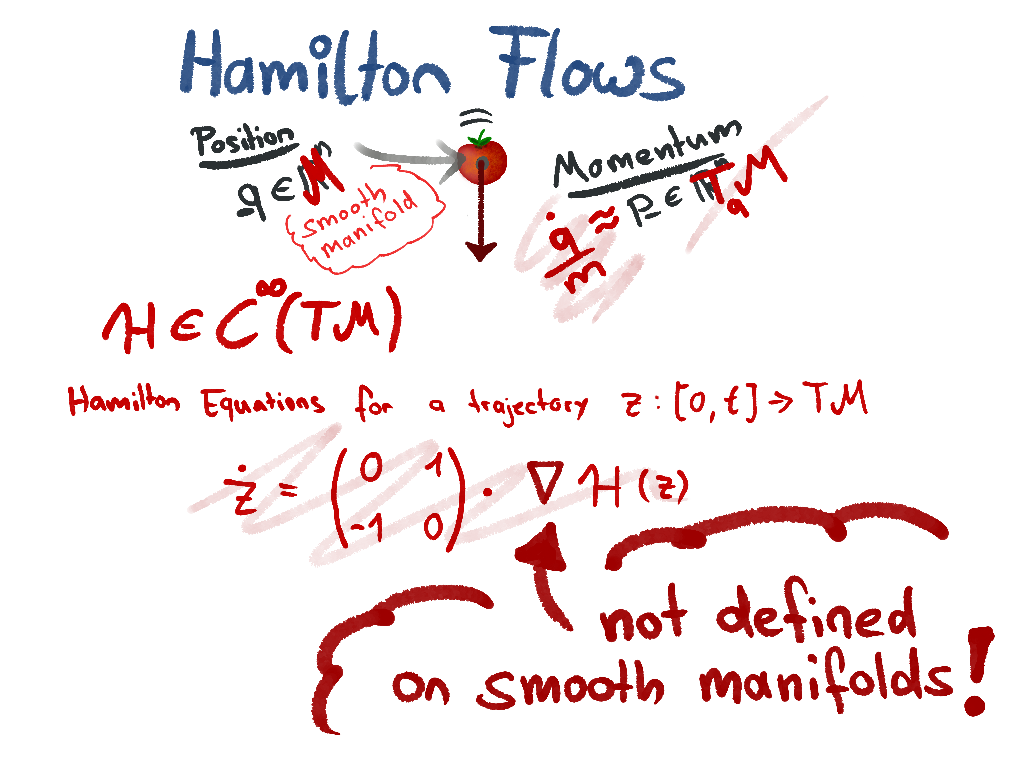 Hamilton Flows
Position
q ∈ M
smooth
manifold
Momentum
q̇/m ≈ p ∈ T_q M
H ∈ C^∞(TM)
Hamilton Equations for a trajectory z : [0, t] → TM
ż = (0 1 -1 0) · ∇ H (z)
not defined
on smooth manifolds!